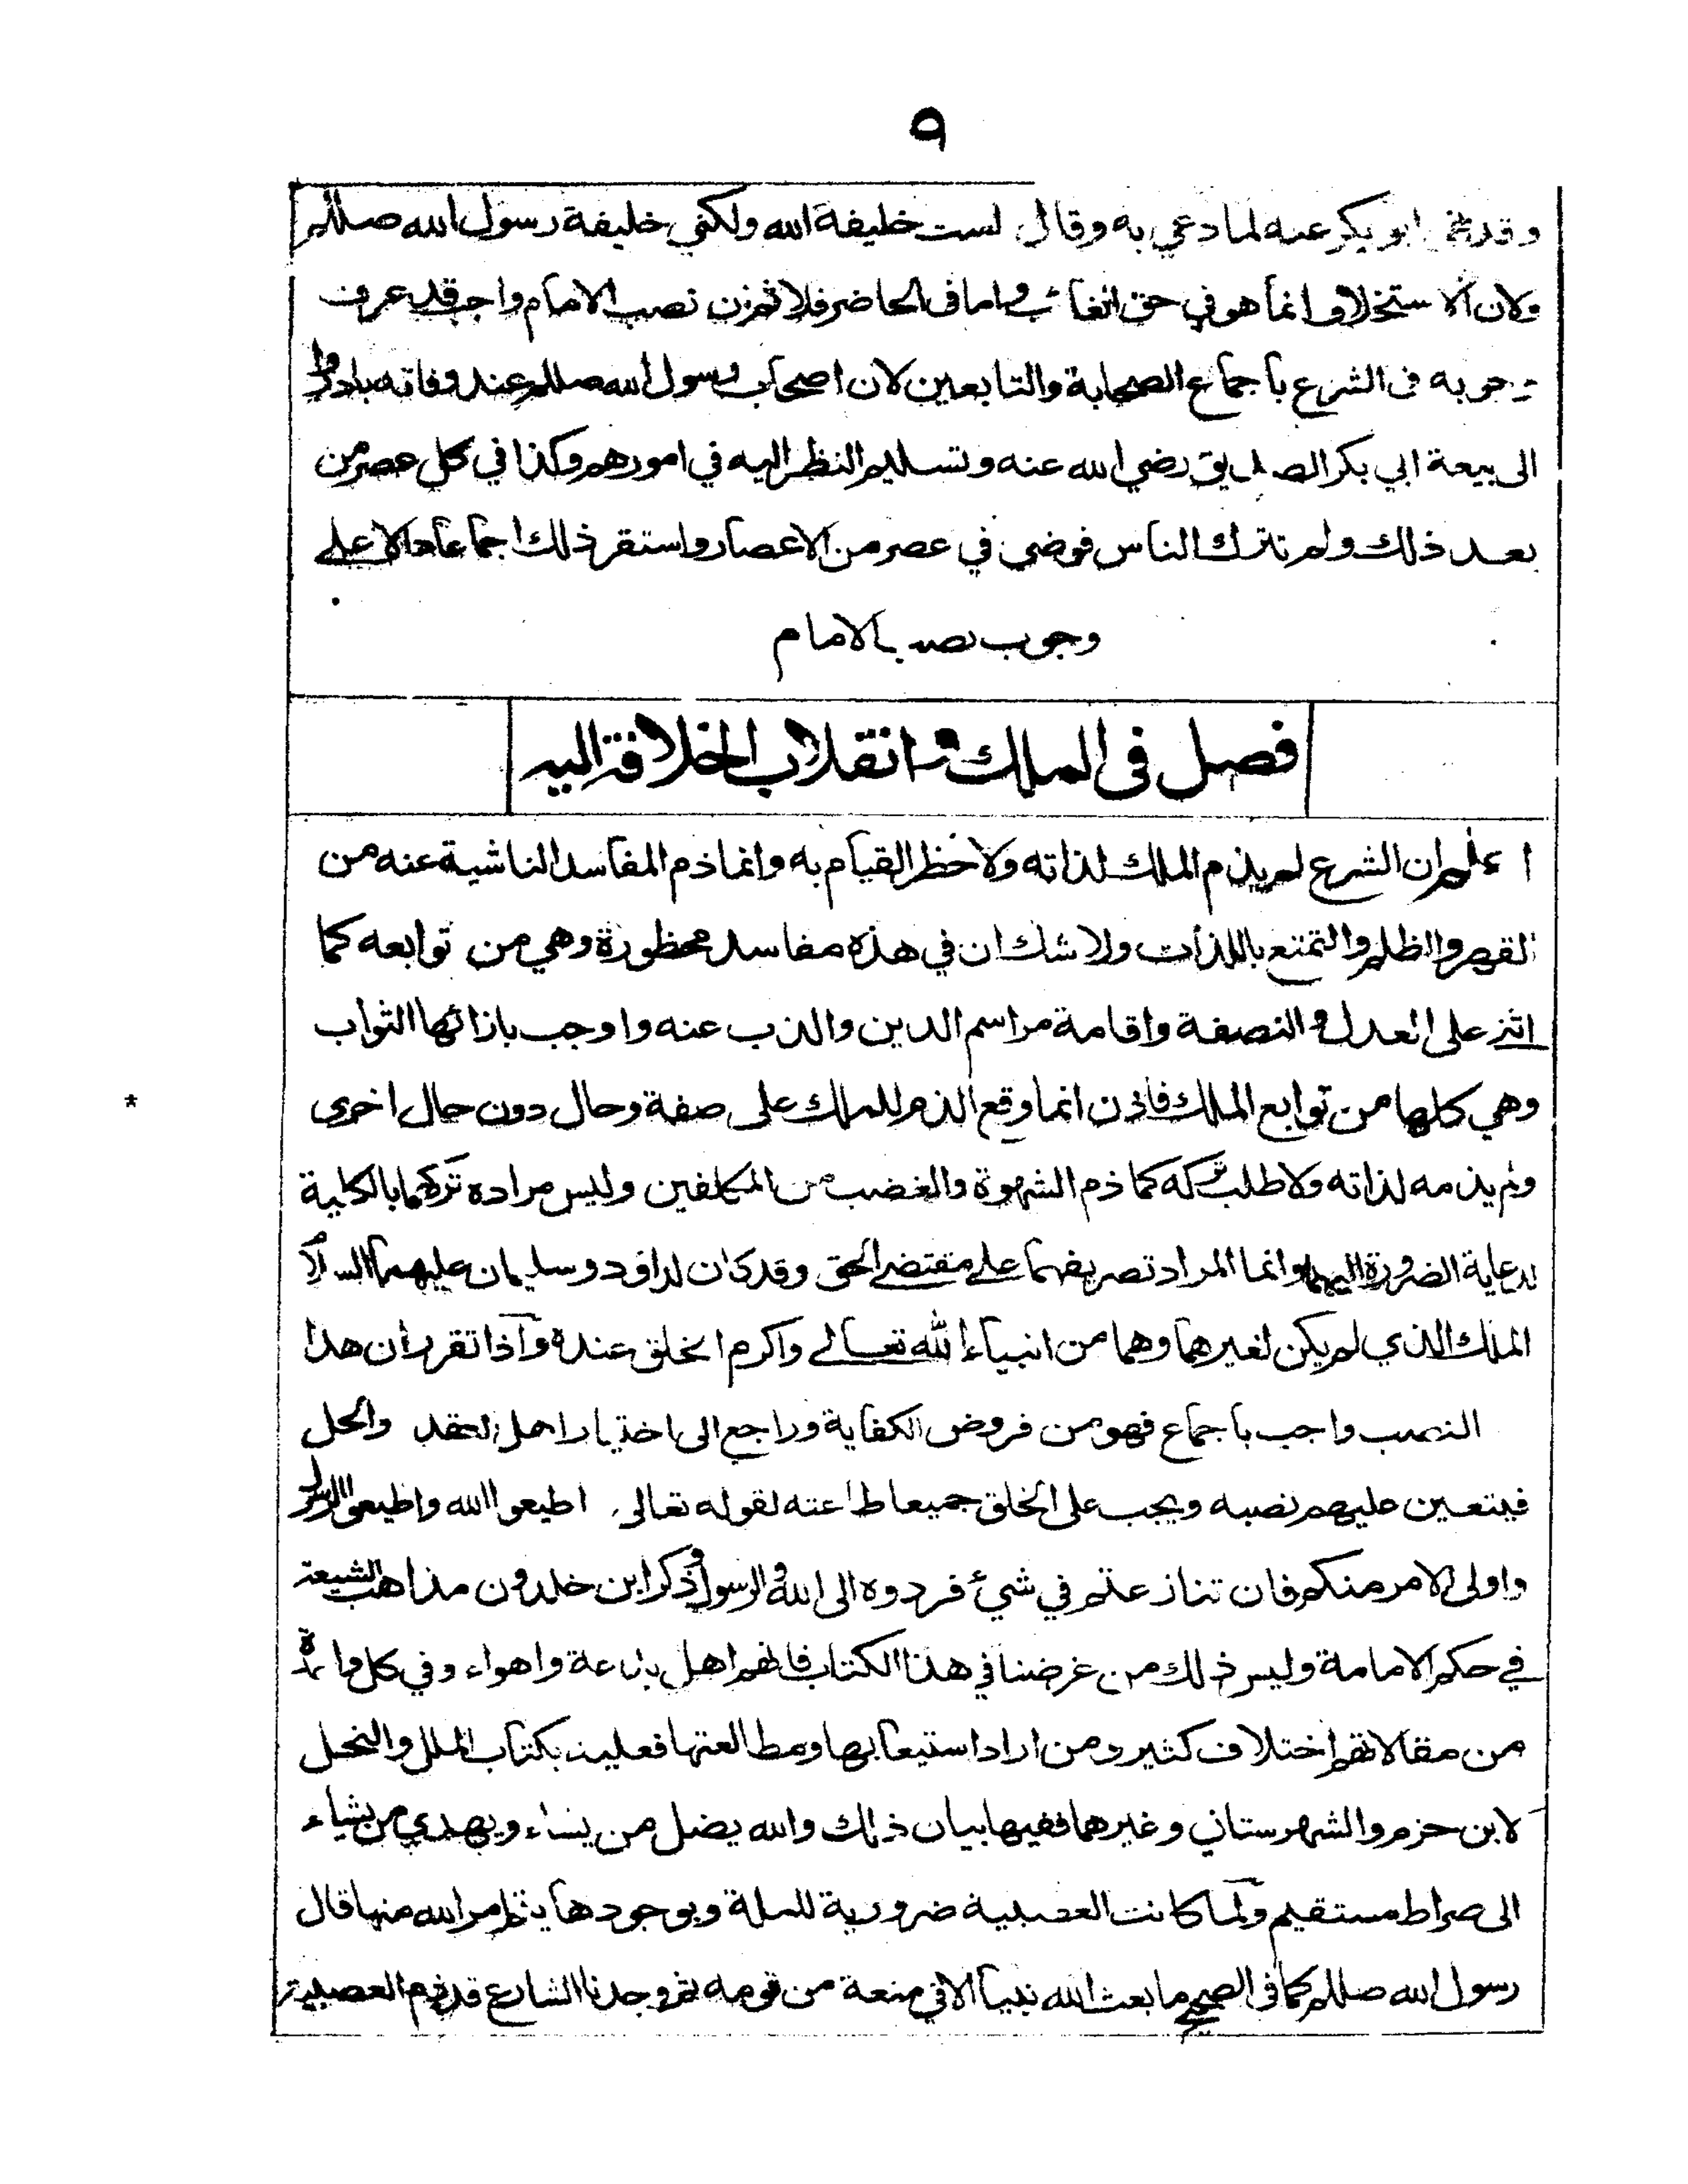 ٩
وقد نهى ابو بكر عنه لما دعي به وقال لست خليفة الله ولكني خليفة رسول الله صللم
ولان الاستخلاف انما هو في حق الغائب واما في الحاضر فلا ثم ان نصب الامام واجب قد عرف
وجوبه فى الشرع باجماع الصحابة والتابعين لان اصحاب رسول الله صللم عند وفاته بادروا
الى بيعة ابي بكر الصديق رضي الله عنه وتسليم النظر اليه في امورهم وكذا في كل عصر من
بعد ذلك ولم تترك الناس فوضى في عصر من الاعصار واستقر ذلك اجماعا دالا على
وجوب نصب الامام
فصل فى الملك وانقلاب الخلافة اليه
اعلم ان الشرع لم يذم الملك لذاته ولا حظر القيام به وانما ذم المفاسد الناشية عنه من
القهر والظلم والتمتع باللذات ولا شك ان في هذه مفاسد محظورة وهي من توابعه كما
اثنى على العدل والنصفة واقامة مراسم الدين والذب عنه واوجب بازائها الثواب
وهي كلها من توابع الملك فاذن انما وقع الذم للملك على صفة وحال دون حال اخرى
ولم يذمه لذاته ولا طلب تركه كما ذم الشهوة والغضب من المكلفين وليس مراده تركهما بالكلية
لدعاية الضرورة اليهما وانما المراد تصريفهما على مقتضى الحق وقد كان لداود وسليمان عليهما السلام
الملك الذي لم يكن لغيرهما وهما من انبياء الله تعالى واكرم الخلق عنده واذا تقرر ان هذا
النصب واجب باجماع فهو من فروض الكفاية وراجع الى اختيار اهل العقد والحل
فيتعين عليهم نصبه ويجب على الخلق جميعا طاعته لقوله تعالى اطيعوا الله واطيعوا الرسول
واولى الامر منكم فان تنازعتم في شيء فردوه الى الله والرسول وذكر ابن خلدون مذاهب الشيعة
في حكم الامامة وليس ذلك من غرضنا في هذا الكتاب فانهم اهل بدعة واهواء وفي كل واحدة
من مقالاتهم اختلاف كثير ومن اراد استيعابها ومطالعتها فعليه بكتاب الملل والنحل
لابن حزم والشهرستاني وغيرهما ففيها بيان ذلك والله يضل من يشاء ويهدي من يشاء
الى صراط مستقيم ولما كانت العصبية ضرورية للملة وبوجودها يتم امر الله منها قال
رسول الله صللم كما فى الصحيح ما بعث الله نبيا الا في منعة من قومه ثم وجدنا الشارع قد ذم العصبية
*